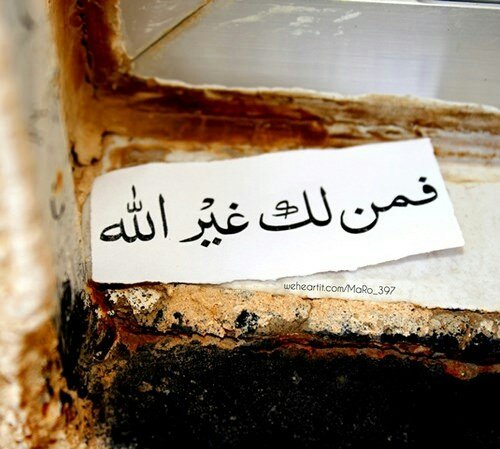 فمن لك غيْر الله
weheartit.com/MaRo_397